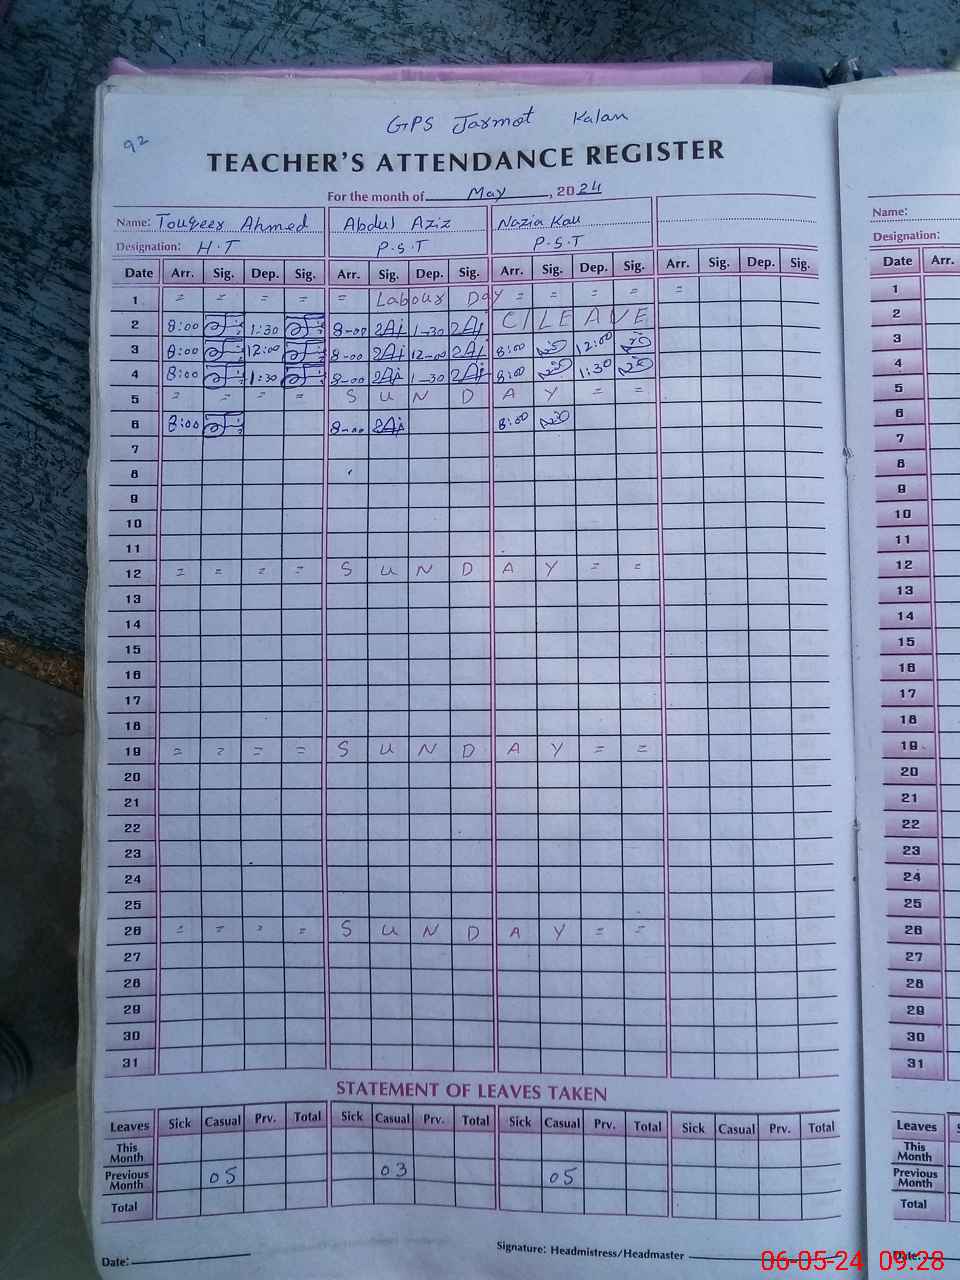 GPS Jarmot Kalan
92
TEACHER'S ATTENDANCE REGISTER
For the month of May, 2024
Name: Touqeer Ahmed Abdul Aziz Nazia Kau Name:
Designation: H.T P.S.T P.S.T Designation:
Date Arr. Sig. Dep. Sig. Arr. Sig. Dep. Sig. Arr. Sig. Dep. Sig. Arr. Sig. Dep. Sig. Date Arr.
1 = = = = = Labour Day = = = = = 1
2 8:00 1:30 8-00 1-30 C/LEAVE 2
3 8:00 12:00 8-00 12-00 8:00 12:00 3
4 8:00 1:30 8-00 1-30 8:00 1:30 4
5 = = = = S U N D A Y = = 5
6 8:00 8-00 8:00 6
7 7
8 8
9 9
10 10
11 11
12 = = = = S U N D A Y = = 12
13 13
14 14
15 15
16 16
17 17
18 18
19 = = = = S U N D A Y = = 19
20 20
21 21
22 22
23 23
24 24
25 25
26 = = = = S U N D A Y = = 26
27 27
28 28
29 29
30 30
31 31
STATEMENT OF LEAVES TAKEN
Leaves Sick Casual Prv. Total Sick Casual Prv. Total Sick Casual Prv. Total Sick Casual Prv. Total Leaves S
This Month This Month
Previous Month 05 03 05 Previous Month
Total Total
Date: Signature: Headmistress/Headmaster Date:
06-05-24 09:28